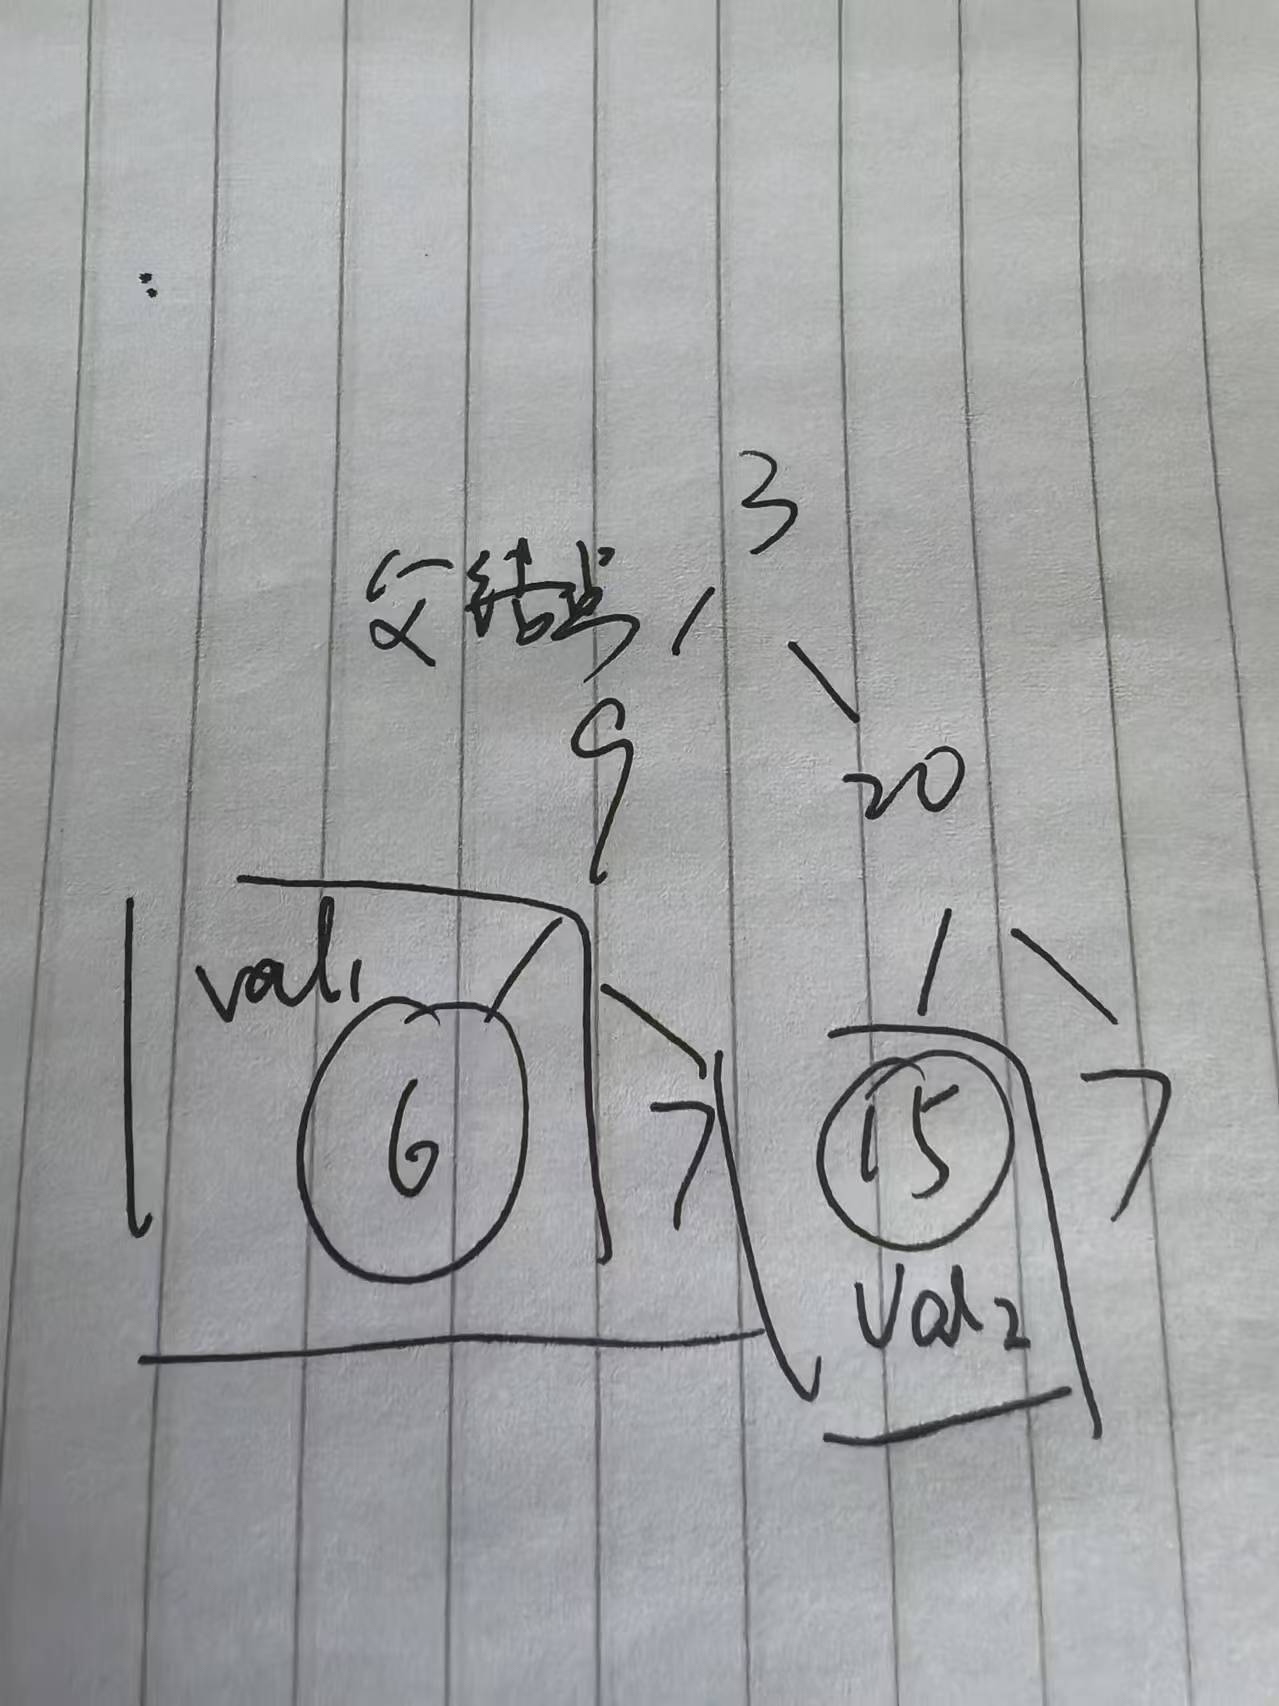 3
父结点
9
20
val1
6
7
15
7
Val2